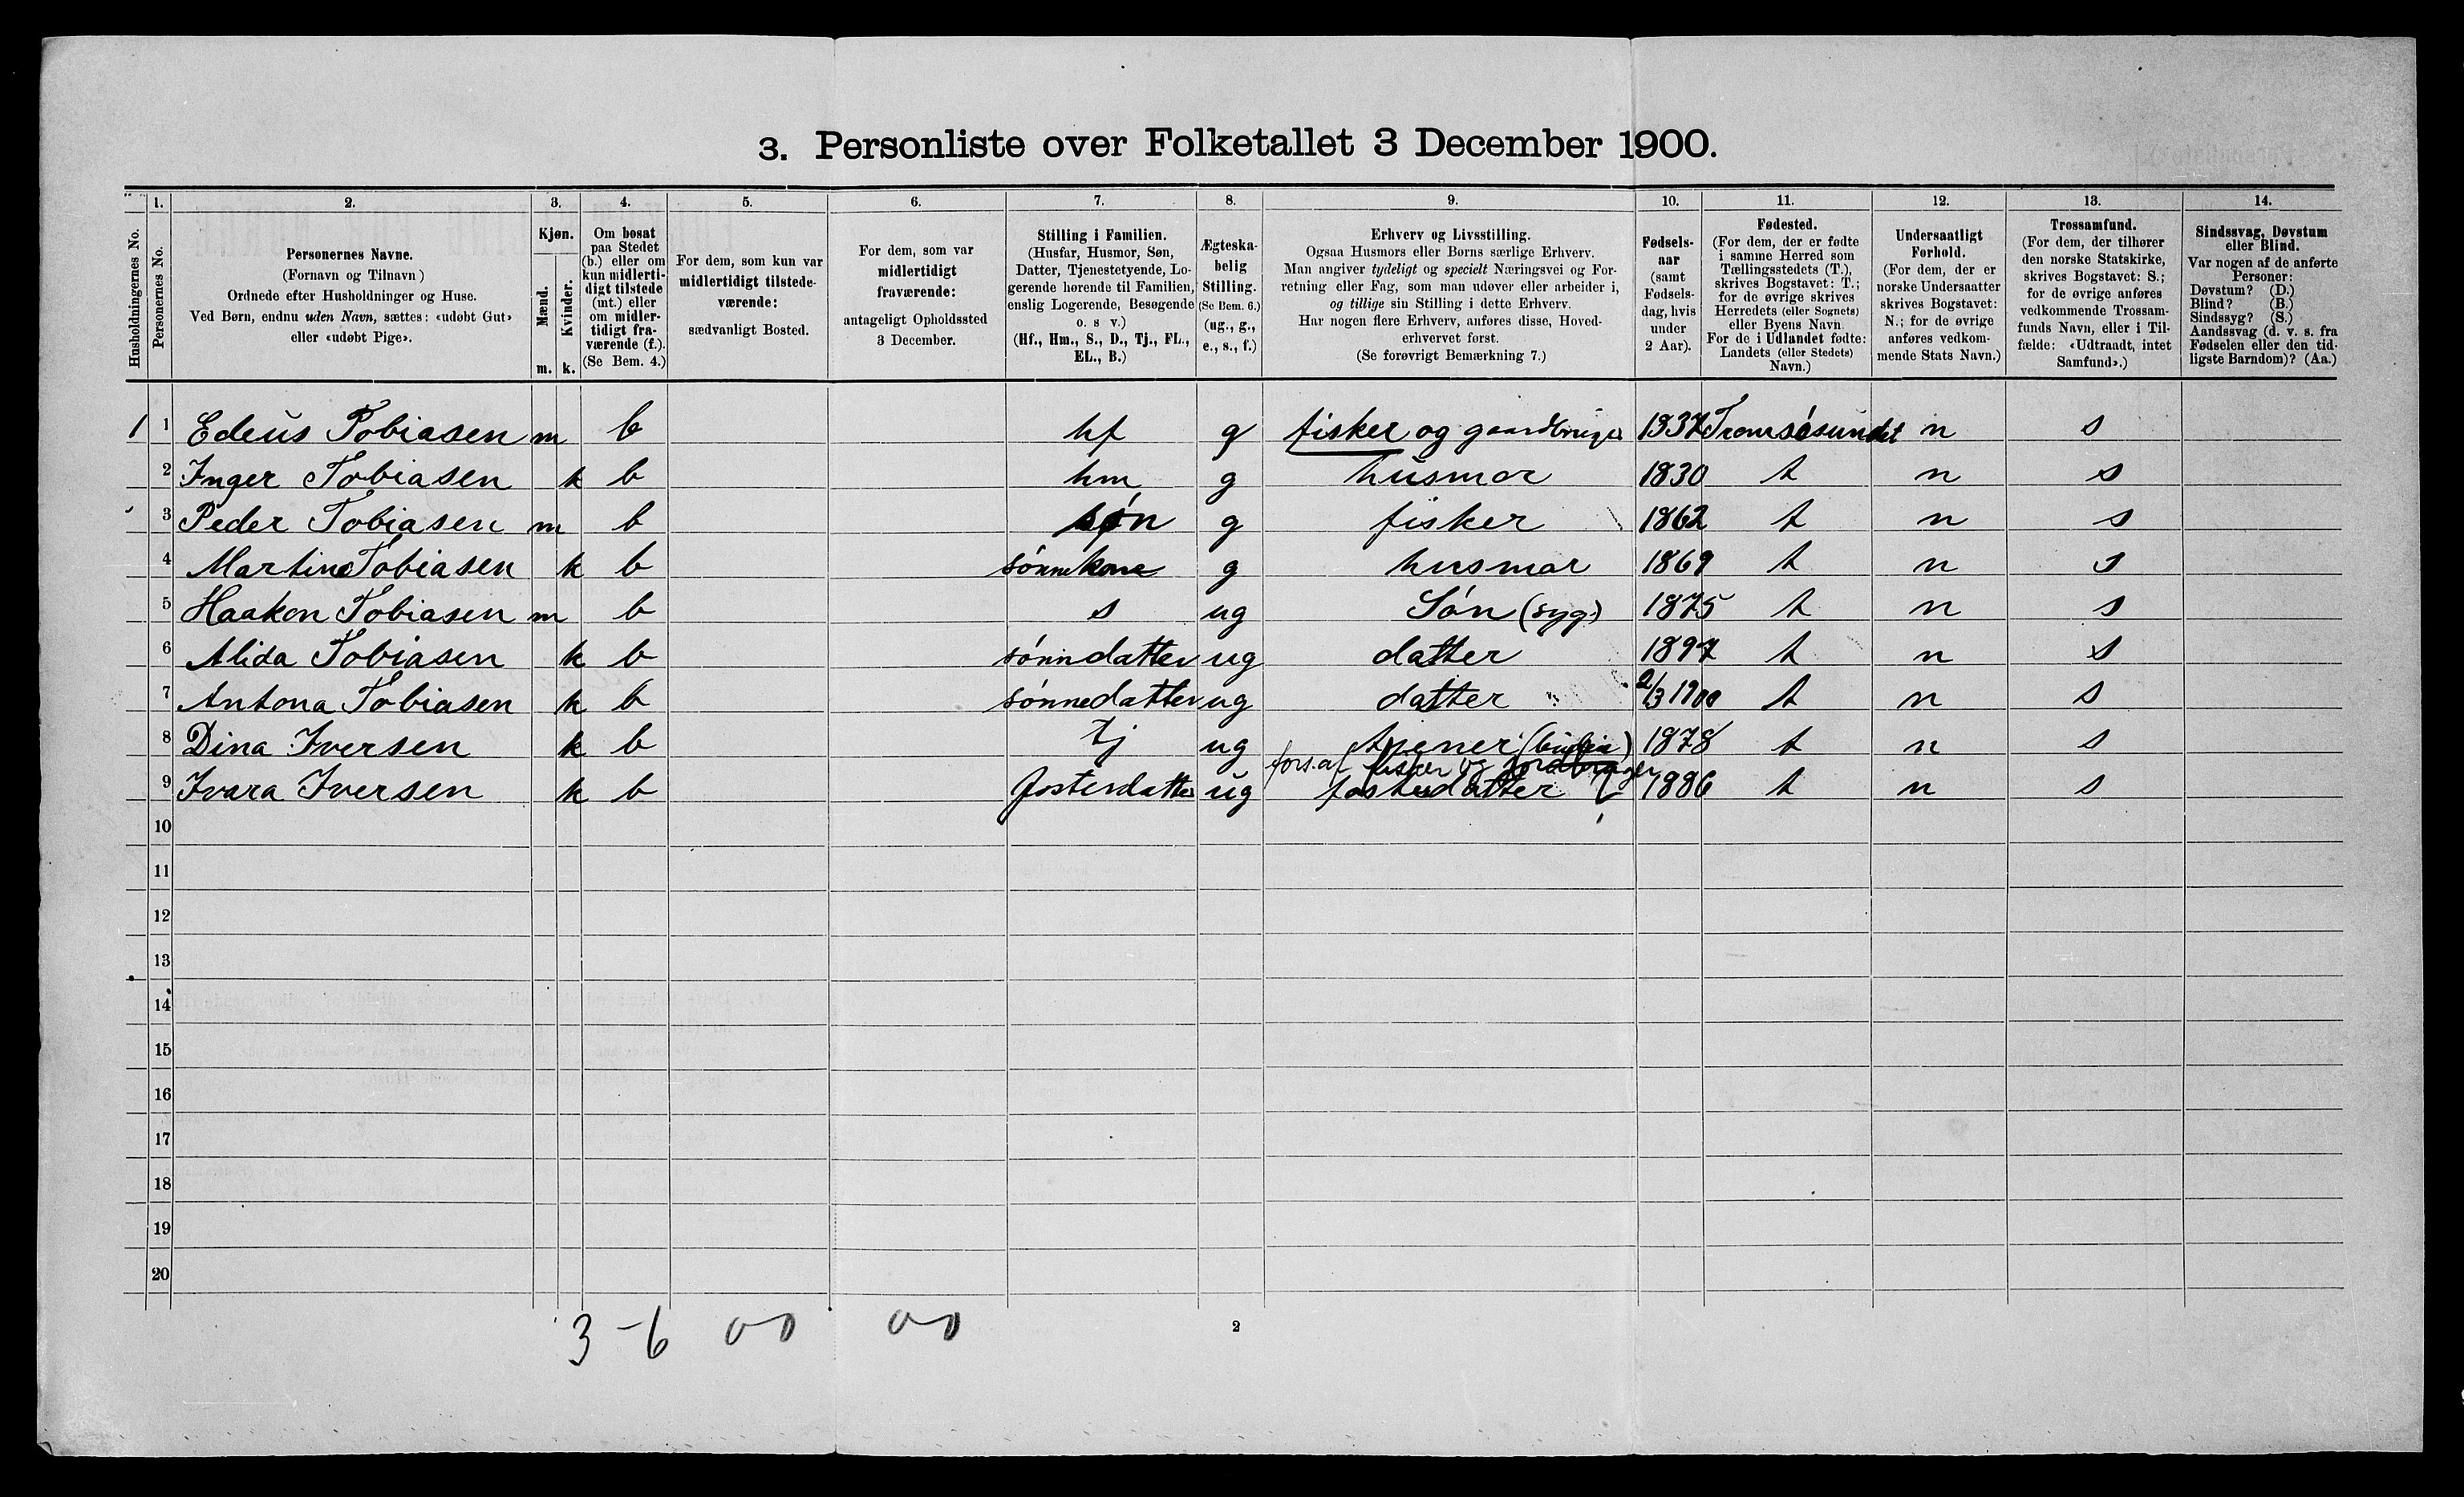 3. Personliste over Folketallet 3 December 1900.
Husholdningernes No.
1. Personernes No.
2. Personernes Navne.
(Fornavn og Tilnavn)
Ordnede efter Husholdninger og Huse.
Ved Børn, endnu uden Navn, sættes: «udøbt Gut»
eller «udøbt Pige».
3. Kjøn.
Mænd. m.
Kvinder. k.
4. Om bosat
paa Stedet
(b.) eller om
kun midlerti-
digt tilstede
(mt.) eller
om midler-
tidigt fra-
værende (f.).
(Se Bem. 4.)
5. For dem, som kun var
midlertidigt tilstede-
værende:
sædvanligt Bosted.
6. For dem, som var
midlertidigt
fraværende:
antageligt Opholdssted
3 December.
7. Stilling i Familien.
(Husfar, Husmor, Søn,
Datter, Tjenestetyende, Lo-
gerende hørende til Familien,
enslig Logerende, Besøgende
o. s v.)
(Hf., Hm., S., D., Tj., FL.,
EL., B.)
8. Ægteska-
belig
Stilling.
(Se Bem. 6.)
(ug., g.,
e., s., f.)
9. Erhverv og Livsstilling.
Ogsaa Husmors eller Børns særlige Erhverv.
Man angiver tydeligt og specielt Næringsvei og For-
retning eller Fag, som man udøver eller arbeider i,
og tillige sin Stilling i dette Erhverv.
Har nogen flere Erhverv, anføres disse, Hoved-
erhvervet først.
(Se forøvrigt Bemærkning 7.)
10. Fødsels-
aar
(samt
Fødsels-
dag, hvis
under
2 Aar).
11. Fødested.
(For dem, der er fødte
i samme Herred som
Tællingsstedets (T.),
skrives Bogstavet: T.;
for de øvrige skrives
Herredets (eller Sognets)
eller Byens Navn.
For de i Udlandet fødte:
Landets (eller Stedets)
Navn.)
12. Undersaatligt
Forhold.
(For dem, der er
norske Undersaatter
skrives Bogstavet:
N.; for de øvrige
anføres vedkom-
mende Stats Navn.)
13. Trossamfund.
(For dem, der tilhører
den norske Statskirke,
skrives Bogstavet: S.;
for de øvrige anføres
vedkommende Trossam-
funds Navn, eller i Til-
fælde: «Udtraadt, intet
Samfund».)
14. Sindssvag, Døvstum
eller Blind.
Var nogen af de anførte
Personer:
Døvstum? (D.)
Blind? (B.)
Sindssyg? (S.)
Aandssvag (d. v. s. fra
Fødselen eller den tid-
ligste Barndom)? (Aa.)
1 1 Edeus Tobiasen m b hf g fisker og gaardbruger 1837 Tromsösundet n s
2 Inger Tobiasen k b hm g husmor 1830 t n s
3 Peder Tobiasen m b søn g fisker 1862 t n s
4 Martine Tobiasen k b sönnekone g husmor 1869 t n s
5 Haakon Tobiasen m b s ug Sön (syg) 1875 t n s
6 Alida Tobiasen k b sönndatter ug datter 1897 t n s
7 Antona Tobiasen k b sönnedatter ug datter 2/3 1900 t n s
8 Dina Iversen k b tj ug 1878 t n s
fors. af fisker og jordbruger
9 Ivara Iversen k b fosterdatter ug fosterdatter 1886 t n s
10
11
12
13
14
15
16
17
18
19
20
3 - 6 00 00
2